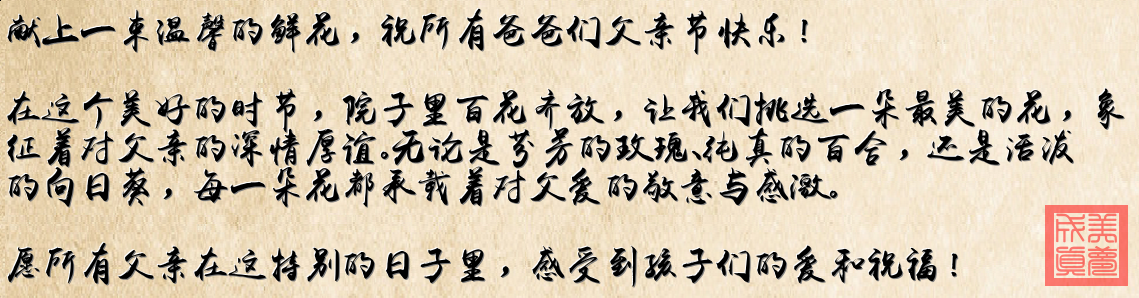 献上一束温馨的鲜花，祝所有爸爸们父亲节快乐！
在这个美好的时节，院子里百花齐放，让我们挑选一朵最美的花，象
征着对父亲的深情厚谊。无论是芬芳的玫瑰、纯真的百合，还是活泼
的向日葵，每一朵花都承载着对父爱的敬意与感激。
愿所有父亲在这特别的日子里，感受到孩子们的爱和祝福！
美梦
成真